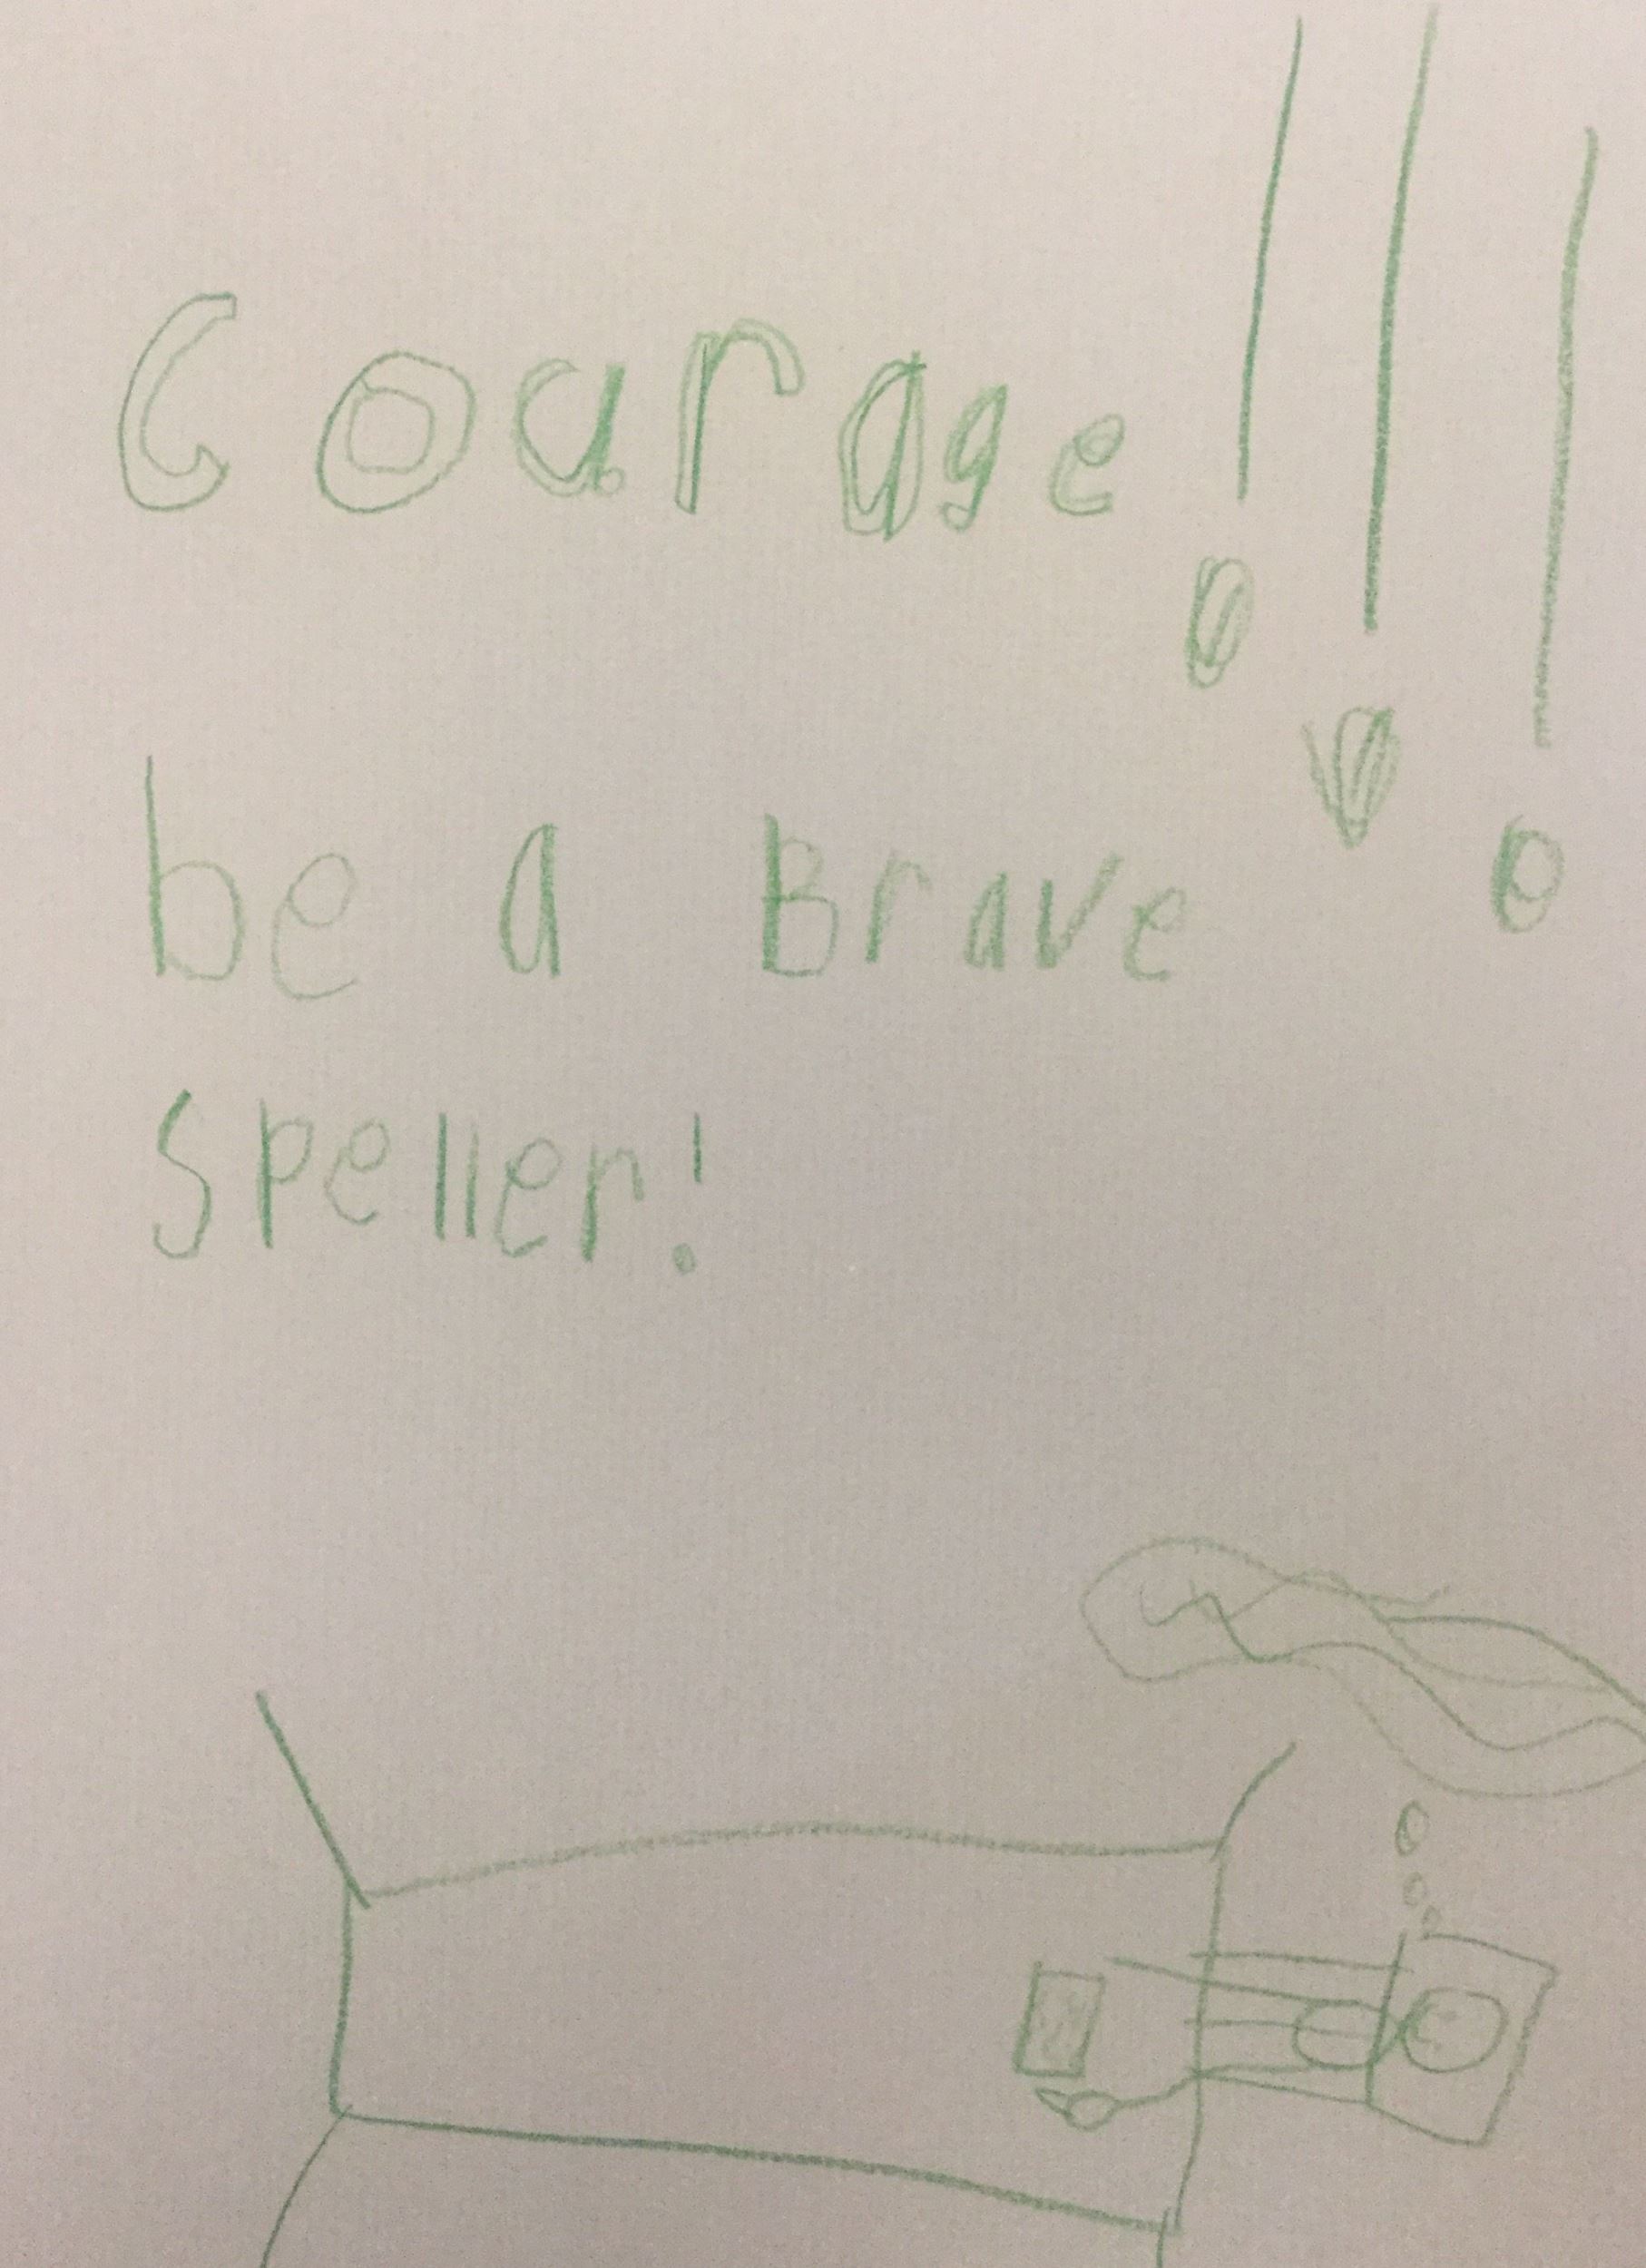 Courage!!!
be a Brave
Speller!